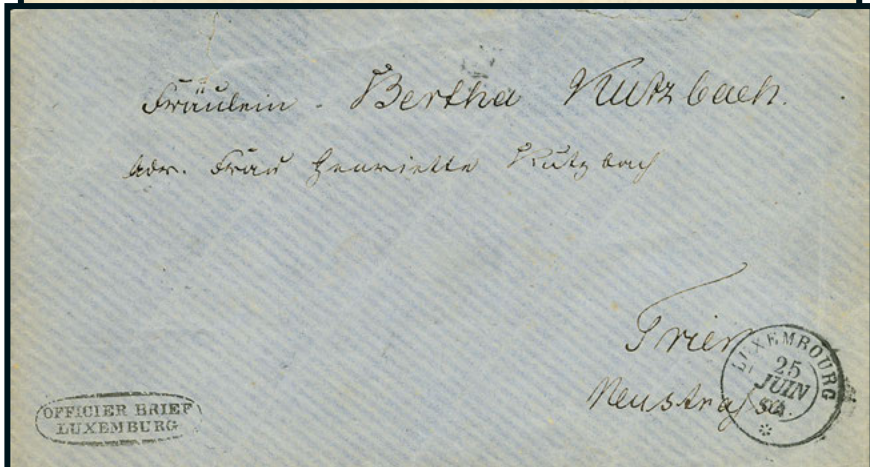 Fräulein. Bertha Kutzbach.
adr. Frau Henriette Kutzbach
Trier
Neustraße
LUXEMBOURG
25
JUIN
OFFICIER BRIEF
LUXEMBURG